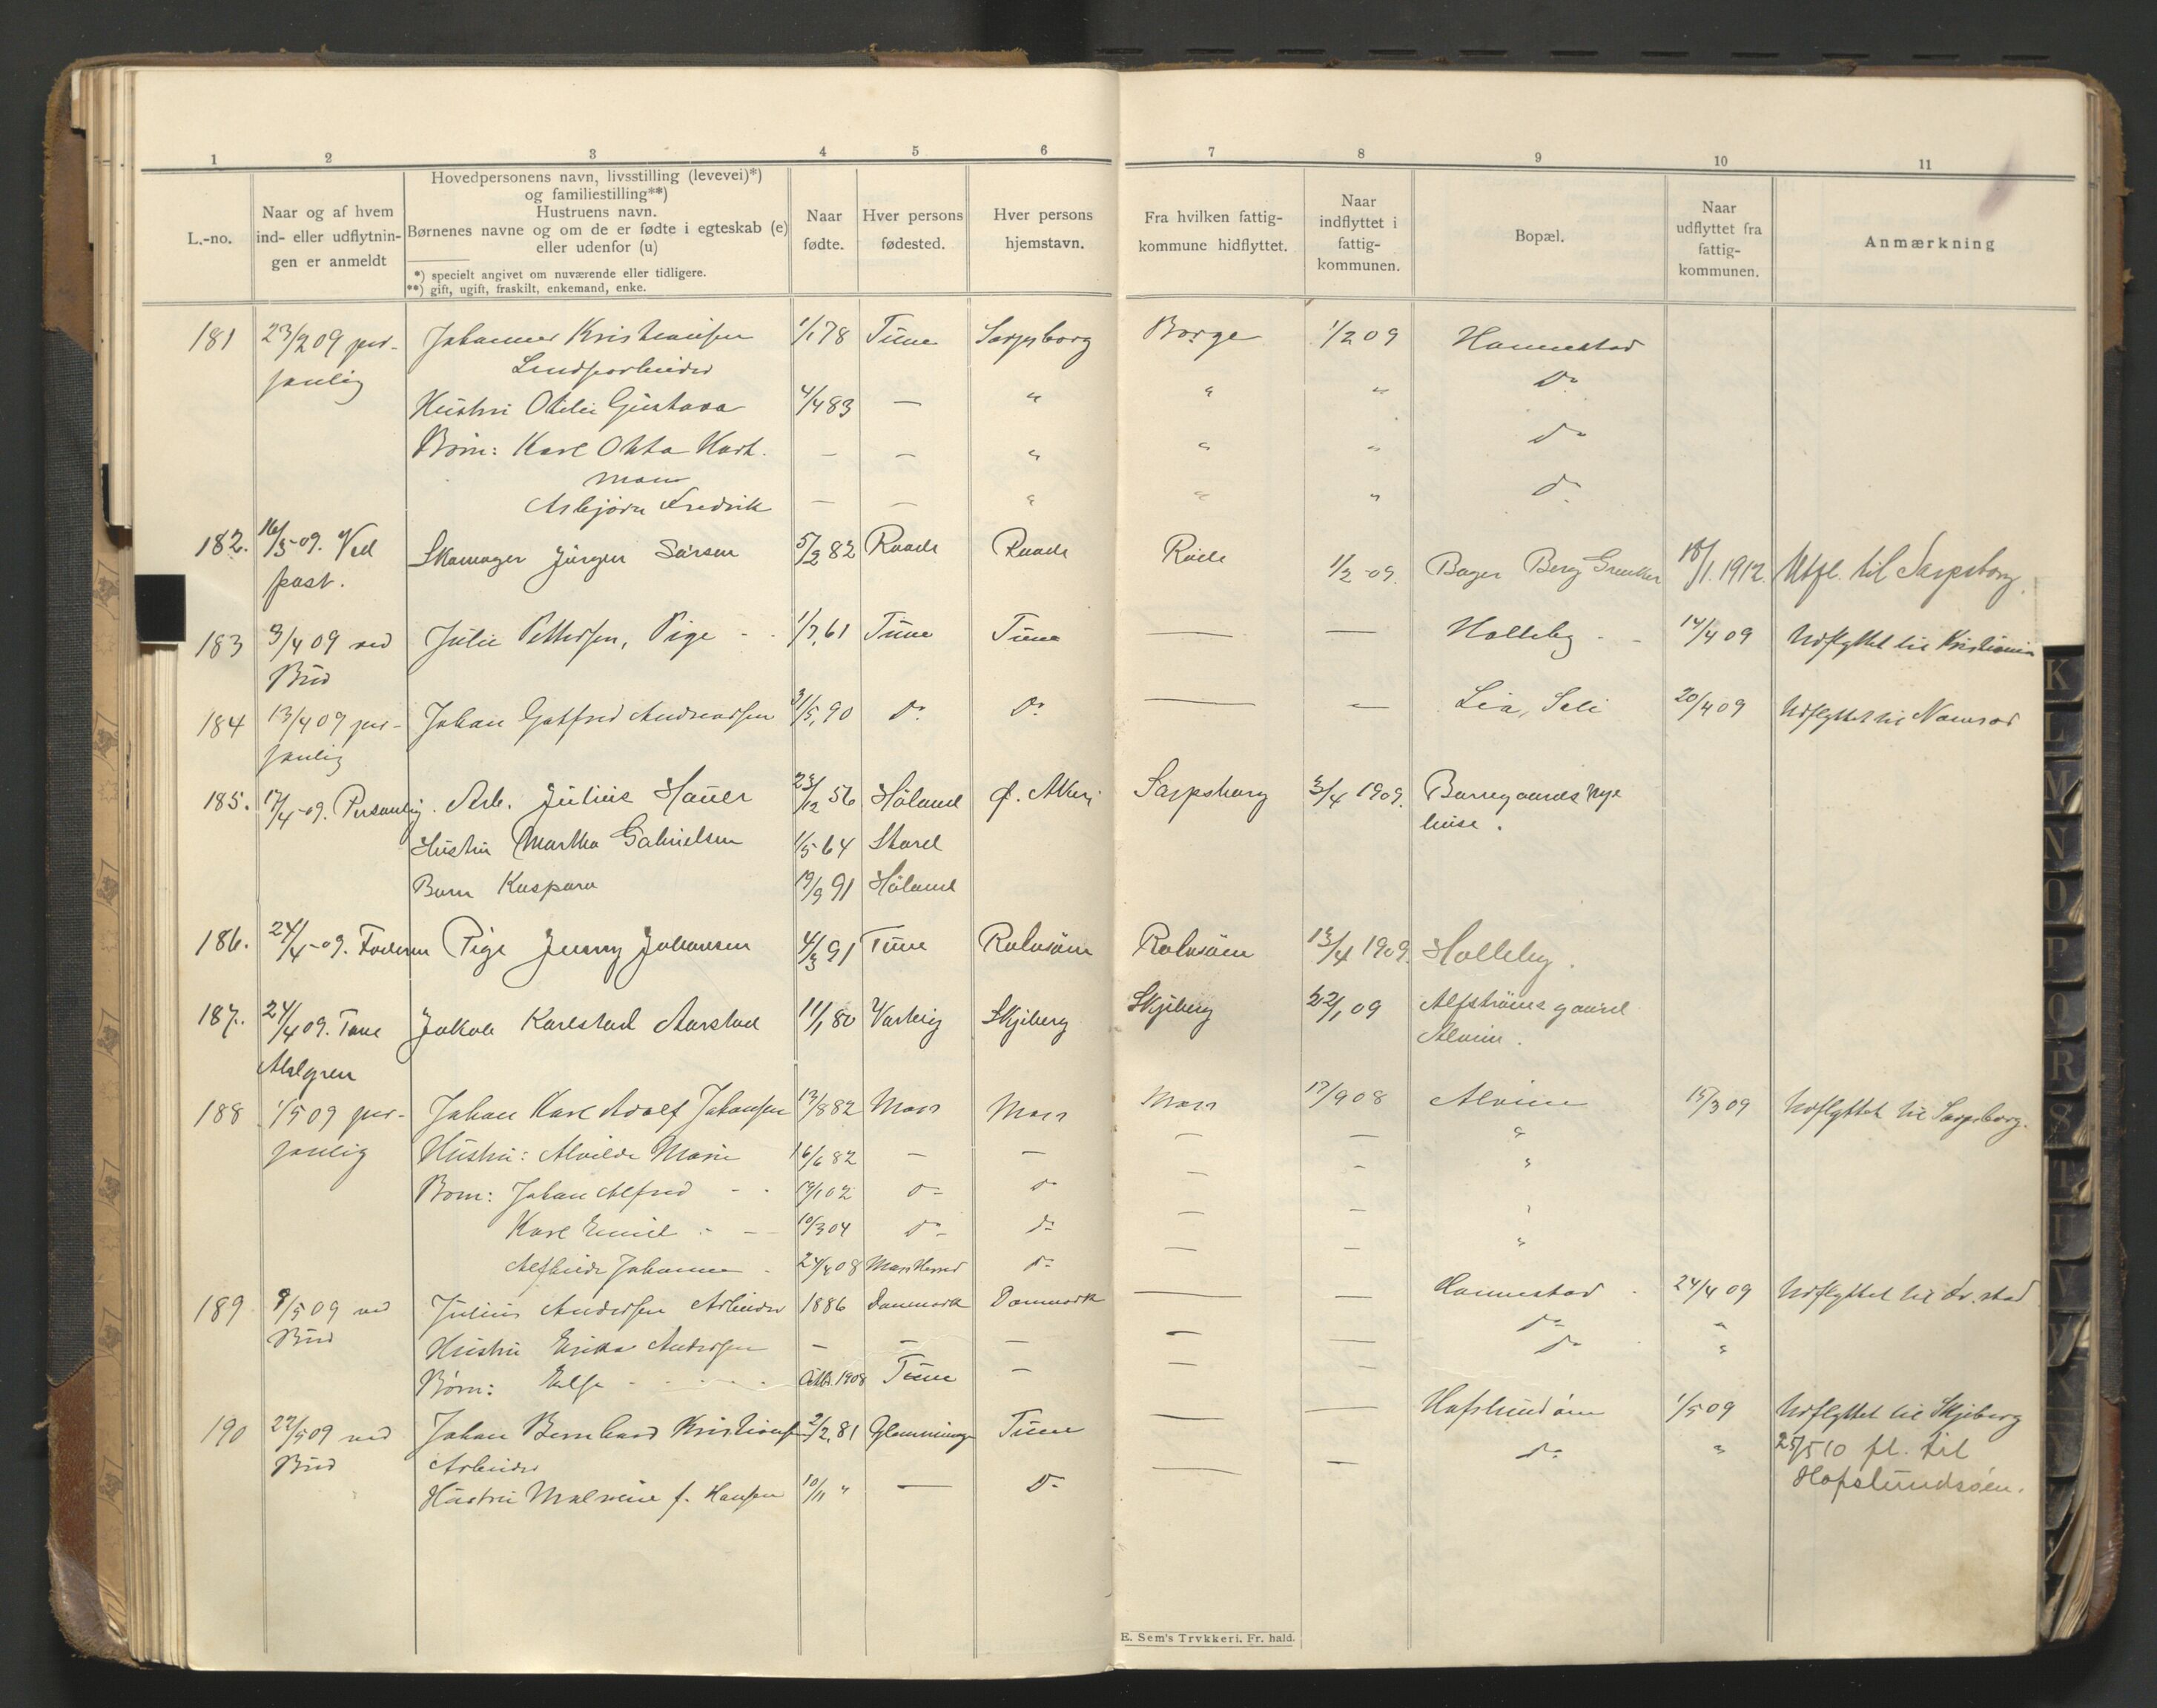 1 2 3 4 5 6 7 8 9 10 11
L.-no.
Naar og af hvem
ind- eller udflytnin-
gen er anmeldt
Hovedpersonens navn, livsstilling (levevei)*)
og familiestilling**)
Hustruens navn.
Børnenes navne og om de er fødte i egteskab (e)
eller udenfor (u)
*) specielt angivet om nuværende eller tidligere.
**) gift, ugift, fraskilt, enkemand, enke.
Naar
fødte.
Hver persons
fødested.
Hver persons
hjemstavn.
Fra hvilken fattig-
kommune hidflyttet.
Naar
indflyttet i
fattig-
kommunen.
Bopæl.
Naar
udflyttet fra
fattig-
kommunen.
Anmærkning
181 23/2 09 per- Johannes Kristiansen 1/1 78 Tune Sarpsborg Borge 1/2 09 Hannestad
sonlig
Hustru Otilie Gustava 4/4 83 — " " " Do
Børn: Karl Otto Hart- — — " " " Do
man
Asbjørn Fredrik — — " " " Do
182. 16/3-09. Ved Skomager Jørgen Sørsen 5/2 82 Raade Raade Råde 1/2-09. Bager Berg 18/1.1912. Utfl. til Sarpsborg.
post.
183 3/4 09 ved Julie Pettersen, Pige 1/7.61 Tune Tune — — Holleby 14/4 09 Udflyttet til Kristiania
Bud
184 13/4 09 per- Johan Gotfred Andreassen 31/5.90 Do Do — — Lia, Seli 20/4 09 Udflyttet til
sonlig
185. 17/4-09. Personlig. Arb. Julius Hauer 23/12 56 Høland Ø. Aker Sarpsborg 3/4 1909. Borregaards nye
huse.
Hustru Martha Gabrielsen 1/5 64
Barn Kaspara 19/9 91 Høland
186. 24/4-09. Faderen Pige Jenny Johansen 4/3 91 Tune Rolvsøen Rolvsøen 13/4 1909. Holleby.
187. 24/4 09. Tove Jakob Karlstad Aarstad 11/1 80 Varteig Skjeberg Skjeberg 22/1 09 Alfstrøms gaard
Ahlgren Alvim.
188 1/5 09 per- Johan Karl Adolf Johansen 13/8 82 Moss Moss Moss 17/9 08 Alvim 15/3 09 Udflyttet til Sarpsborg.
sonlig Hustru: Alvilde Marie 16/6 82 — — — — "
Børn: Johan Alfred 19/1 02 Do Do — — "
Karl Emil 10/3 04 Do Do — — "
Alfhilde Johanne 24/4 08 Moss Herred Do — — "
189 8/5 09 ved Julius Andersen Arbeider 1886 Danmark Danmark — — Hannestad 24/4 09 Udflyttet til Fr.stad
Bud Hustru Erika Andersen — — — — — Do "
Børn: Else Oktb. 1908 Tune — — — Do "
190 22/5 09 ved Johan Bernhard Kristiansen 2/2.81 Glemminge Tune — — Hafslundsøen 1/5 09 Udflyttet til Skjeberg
Bud Arbeider
Hustru Malvine f. Hansen 10/11 " — Do — — Do " 25/5 10 fl. til
Hafslundsøen.
E. Sem's Trykkeri. Fr.hald.
K
L
M
N
O
P
Q
R
S
T
U
V